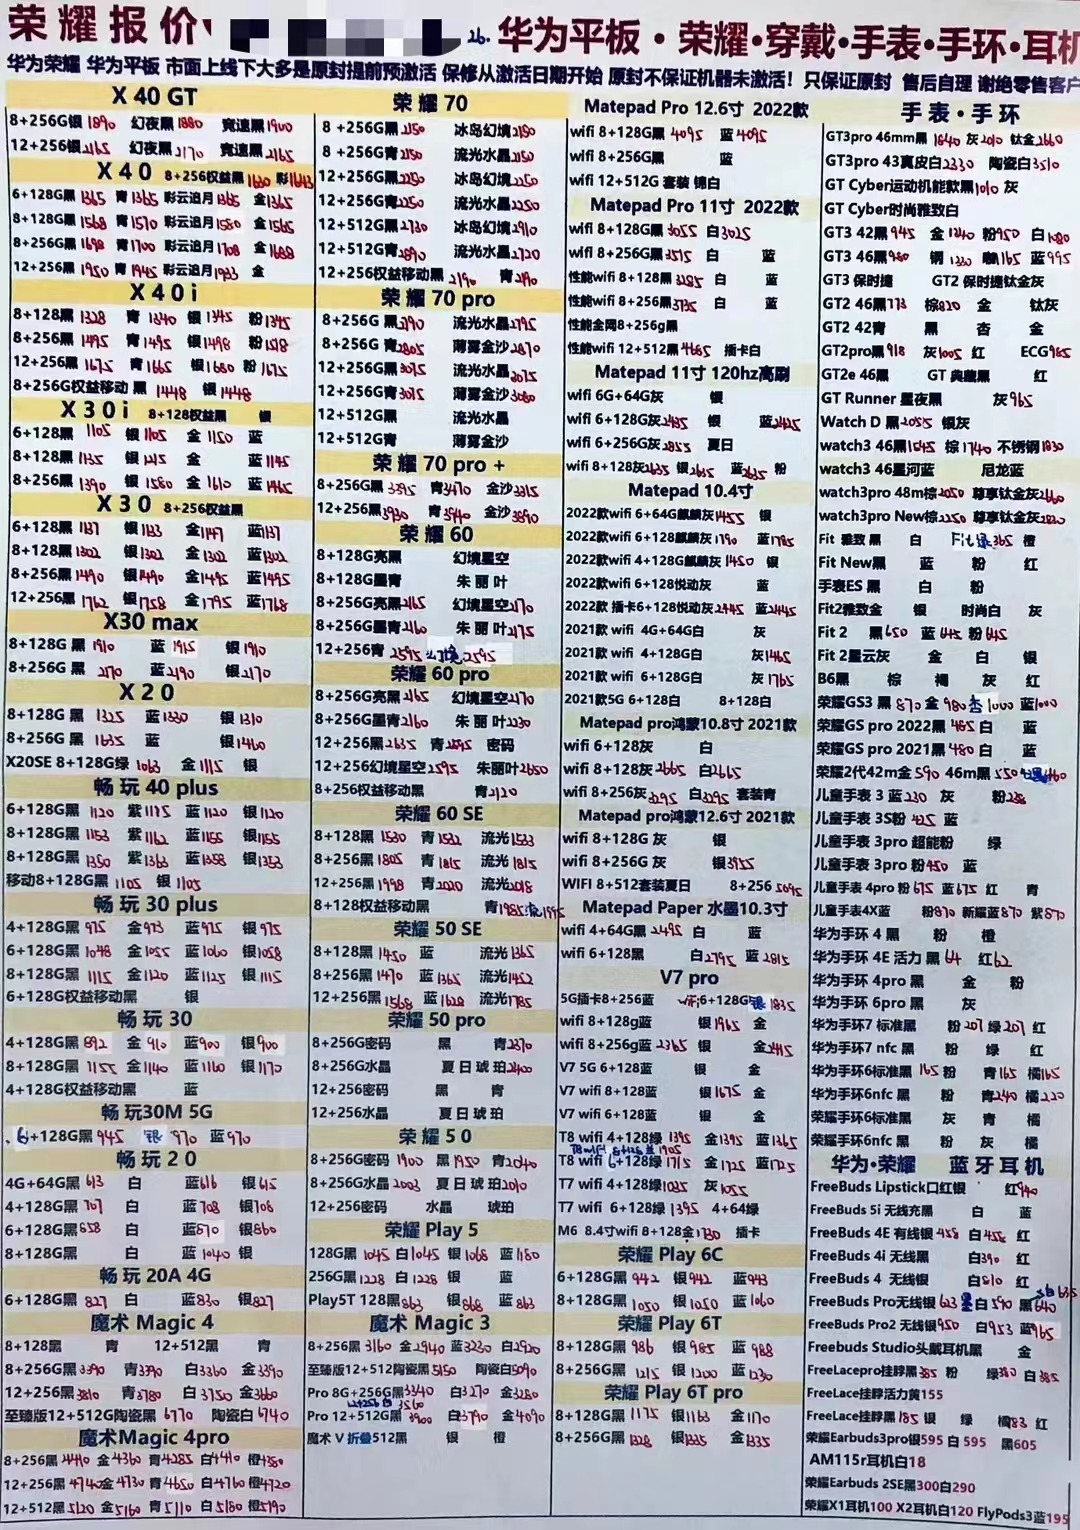 荣耀报价
26.
华为平板·荣耀·穿戴·手表·手环·耳机
华为荣耀 华为平板 市面上线下大多是原封提前预激活 保修从激活日期开始 原封不保证机器未激活！只保证原封 售后自理 谢绝零售客户
X 40 GT
8+256G银1890 幻夜黑1880 竞速黑1900
12+256银2165 幻夜黑2170 竞速黑2165
X 40 8+256权益黑1630 彩1643
6+128G黑1365 青1365 彩云追月1365 金1365
8+128G黑1568 青1570 彩云追月1580 金1565
8+256G黑1698 青1700 彩云追月1708 金1688
12+256黑1950 青1945 彩云追月1933 金
X 40 i
8+128黑1328 青1340 银1345 粉1345
8+256黑1495 青1495 银1498 粉1518
12+256黑1675 青1665 银1680 粉1675
8+256G权益移动 黑1448 银1448
X 30 i 8+128权益黑 银
6+128黑1105 银1105 金1150 蓝
8+128黑1135 银1215 金 蓝1145
8+256黑1390 银1580 金1610 蓝1465
X 30 8+256权益黑
6+128黑1137 银1133 金1147 蓝1137
8+128黑1302 银1302 金1302 蓝1302
8+256黑1490 银1490 金1495 蓝1495
12+256黑1762 银1758 金1795 蓝1768
X30 max
8+128G 黑1910 蓝1915 银1910
8+256G 黑2170 蓝2190 银2170
X 20
8+128G 黑1325 蓝1330 银1310
8+256G 黑1635 蓝 银1460
X20SE 8+128G绿1063 金1115 银
畅 玩 40 plus
6+128G黑1120 紫1115 蓝1120 银1120
8+128G黑1153 紫1162 蓝1155 银1155
8+256G黑1350 紫1363 蓝1358 银1353
移动8+128G黑1105 银1105
畅 玩 30 plus
4+128G黑975 金973 蓝975 银975
6+128G黑1048 金1055 蓝1060 银1058
8+128G黑1115 金1120 蓝1125 银1115
6+128G权益移动黑 银
畅 玩 30
4+128G黑892 金910 蓝900 银900
8+128G黑1155 金1140 蓝1160 银1170
4+128G权益移动黑 蓝
畅 玩30M 5G
、6+128G黑945 银970 蓝970
畅 玩 2 0
4G+64G黑613 白 蓝616 银615
4+128G黑707 白 蓝708 银708
6+128G黑658 白 蓝670 银660
8+128G黑 白 蓝1040 银
畅 玩 20A 4G
6+128G黑827 白 蓝830 银827
魔术 Magic 4
8+128黑 青 12+512黑 青
8+256G黑3390 青3390 白3360 金3390
12+256黑3810 青3780 白3750 金3660
至臻版12+512G陶瓷黑6770 陶瓷白6740
魔术Magic 4pro
8+256黑4410 金4360 青4285 白4410 橙4380
12+256黑4740 金4730 青4650 白4760 橙4720
12+512黑5120 金5160 青5110 白5180 橙5190
荣 耀 70
8 +256G黑2150 冰岛幻境2150
8 +256G青2150 流光水晶2150
12+256G黑2250 冰岛幻境2250
12+256G青2250 流光水晶2250
12+512G黑2730 冰岛幻境2910
12+512G青2890 流光水晶2720
12+256权益移动黑2190 青2190
荣 耀 70 pro
8+256G 黑2790 流光水晶2795
8+256G 青2805 薄雾金沙2870
12+256G黑3075 流光水晶3075
12+256G青3075 薄雾金沙3080
12+512G黑 流光水晶
12+512G青 薄雾金沙
荣 耀 70 pro +
8+256G黑3395 青3470 金沙3315
12+256黑3930 青3940 金沙3890
荣 耀 60
8+128G亮黑 幻境星空
8+128G墨青 朱 丽 叶
8+256G亮黑2165 幻境星空2170
8+256G墨青2160 朱 丽 叶2175
12+256青2595 幻境2595
荣耀 60 pro
8+256G亮黑2165 幻境星空2170
8+256G墨青2160 朱 丽 叶2230
12+256黑2635 青2595 密码
12+256幻境星空2595 朱丽叶2650
8+256权益移动黑 青2120
荣耀 60 SE
8+128黑1530 青1532 流光1533
8+256黑1805 青1815 流光1815
12+256黑1998 青2020 流光2018
8+128权益移动黑 青1985 流1995
荣耀 50 SE
8+128黑1450 蓝 流光1365
8+256黑1470 蓝1365 流光1452
12+256黑1568 蓝1628 流光1785
荣耀 50 pro
8+256G密码 黑 青2370
8+256G水晶 夏 日 琥 珀2400
12+256密码 黑 青
12+256水晶 夏 日 琥 珀
荣 耀 5 0
8+256G密码 1900 黑1950 青2040
8+256G水晶 2003 夏 日 琥 珀2010
12+256密码 水晶 琥珀
荣耀 Play 5
128G黑1045 白1045 银1068 蓝1180
256G黑1228 白1228 银 蓝
Play5T 128黑863 银868 蓝863
魔术 Magic 3
8+256黑3160 金2940 蓝3230 白2920
至臻版12+512陶瓷黑5150 陶瓷白5090
Pro 8G+256G黑3340 白3270 金3280
12+256白3560
Pro 12+512G黑3900 白3790 金4090
魔术 V 折叠512黑 银 橙
Matepad Pro 12.6寸 2022款
wifi 8+128G黑4095 蓝4095
wifi 8+256G黑 蓝
wifi 12+512G 套装 锦白
Matepad Pro 11寸 2022款
wifi 8+128G黑3055 白3025
wifi 8+256G黑3515 白 蓝
性能wifi 8+128黑3285 白 蓝
性能wifi 8+256黑3735 白 蓝
性能全网8+256g黑
性能wifi 12+512黑4665 插卡白
Matepad 11寸 120hz高刷
wifi 6G+64G灰 银
wifi 6+128G灰2425 银 蓝2425
wifi 6+256G灰2855 夏日
wifi 8+128灰2635 银2615 蓝2635 粉
Matepad 10.4寸
2022款wifi 6+64G麒麟灰1455 银
2022款wifi 6+128麒麟灰1790 蓝1785
2022款wifi 4+128G麒麟灰1450 银
2022款wifi 6+128悦动灰 蓝
2022款 插卡6+128悦动灰2445 蓝2445
2021款 wifi 4G+64G白 灰
2021款 wifi 4+128G白 灰1465
2021款 wifi 6+128G白 灰1765
2021款5G 6+128白 8+128白
Matepad pro鸿蒙10.8寸 2021款
wifi 6+128灰 白
wifi 8+128灰2665 白2665
wifi 8+256灰3295 白3295 套装青
Matepad pro鸿蒙12.6寸 2021款
wifi 8+128G 灰 银
wifi 8+256G 灰 银3955
WIFI 8+512套装夏日 8+256 5095
Matepad Paper 水墨10.3寸
wifi 4+64G黑2495 白 蓝
wifi 6+128黑 白2795 蓝2815
V7 pro
5G插卡8+256蓝 6+128G 银1835
wifi 8+128g蓝 银1965 金
wifi 8+256g蓝2365 银 金2415
V7 5G 6+128蓝 银 金
V7 wifi 8+128蓝 银1675 金
V7 wifi 6+128蓝 银 金
T8 wifi 4+128绿 1395 金1395 蓝1365
T8 wifi 8+128 蓝1905
T8 wifi 6+128绿1715 金1725 蓝1725
T7 wifi 4+128绿1035 灰1055
T7 wifi 6+128绿1395 4+64绿
M6 8.4寸wifi 8+128金1730 插卡
荣耀 Play 6C
6+128G黑942 银942 蓝943
8+128G黑1050 银1050 蓝1060
荣耀 Play 6T
8+128G黑986 银985 蓝988
8+256G黑1215 银1200 蓝1230
荣耀 Play 6T pro
8+128G黑1175 银1163 金1170
8+256G黑1328 银1335 金1335
手 表 · 手 环
GT3pro 46mm黑1840 灰2010 钛金2660
GT3pro 43真皮白2330 陶瓷白3510
GT Cyber运动机能款黑1010 灰
GT Cyber时尚雅致白
GT3 42黑945 金1240 粉950 白1080
GT3 46黑980 钢1330 咖1165 蓝995
GT3 保时捷 GT2 保时捷钛金灰
GT2 46黑773 棕820 金 钛灰
GT2 42青 黑 杏 金
GT2pro黑918 灰1005 红 ECG985
GT2e 46黑 GT 典藏黑 红
GT Runner 星夜黑 灰965
Watch D 黑2055 银灰
watch3 46黑1545 棕1740 不锈钢1830
watch3 46星河蓝 尼龙蓝
watch3pro 48m棕2050 尊享钛金灰2660
watch3pro New棕2250 尊享钛金灰2820
Fit 雅致黑 白 Fit绿365 橙
Fit New黑 蓝 粉 红
手表ES 黑 白 粉
Fit2雅致金 银 时尚白 灰
Fit 2 黑650 蓝645 粉645
Fit 2星云灰 金 白 银
B6黑 棕 褐 灰 红
荣耀GS3 黑870 金980 杏1000 蓝1000
荣耀GS pro 2022黑465 白 蓝
荣耀GS pro 2021黑480 白 蓝
荣耀2代42m金590 46m黑550 460
儿童手表 3 蓝230 灰 粉238
儿童手表 3S粉425 蓝
儿童手表 3pro 超能粉 绿
儿童手表 3pro 粉450 蓝
儿童手表 4pro 粉675 蓝675 红 青
儿童手表4X蓝 粉870 新耀蓝870 紫870
华为手环 4 黑 粉 橙
华为手环 4E 活力 黑64 红62
华为手环 4pro 黑 金 粉
华为手环 6pro 黑 灰
华为手环7 标准黑 粉207 绿207 红
华为手环7 nfc 黑 粉 绿 红
华为手环6标准黑165 粉 青165 橘165
华为手环6nfc 黑 粉 青240 橘220
荣耀手环6标准黑 灰 青 橘
荣耀手环6nfc 黑 粉 灰 橘
华为·荣耀 蓝 牙 耳 机
FreeBuds Lipstick口红银 红940
FreeBuds 5i 无线充黑 白 蓝
FreeBuds 4E 有线银458 白458 红
FreeBuds 4i 无线黑 白390 红
FreeBuds 4 无线银 白610 红
FreeBuds Pro无线银623 白590 黑640
FreeBuds Pro2 无线银950 白953 蓝965
Freebuds Studio头戴耳机黑 金
FreeLacepro挂脖黑385 粉 绿380 白385
FreeLace挂脖活力黄155
FreeLace挂脖黑185 银 绿 橘83 红
荣耀Earbuds3pro银595 白 595 黑605
AM115r耳机白18
荣耀Earbuds 2SE黑300白290
荣耀X1耳机100 X2耳机白120 FlyPods3蓝195